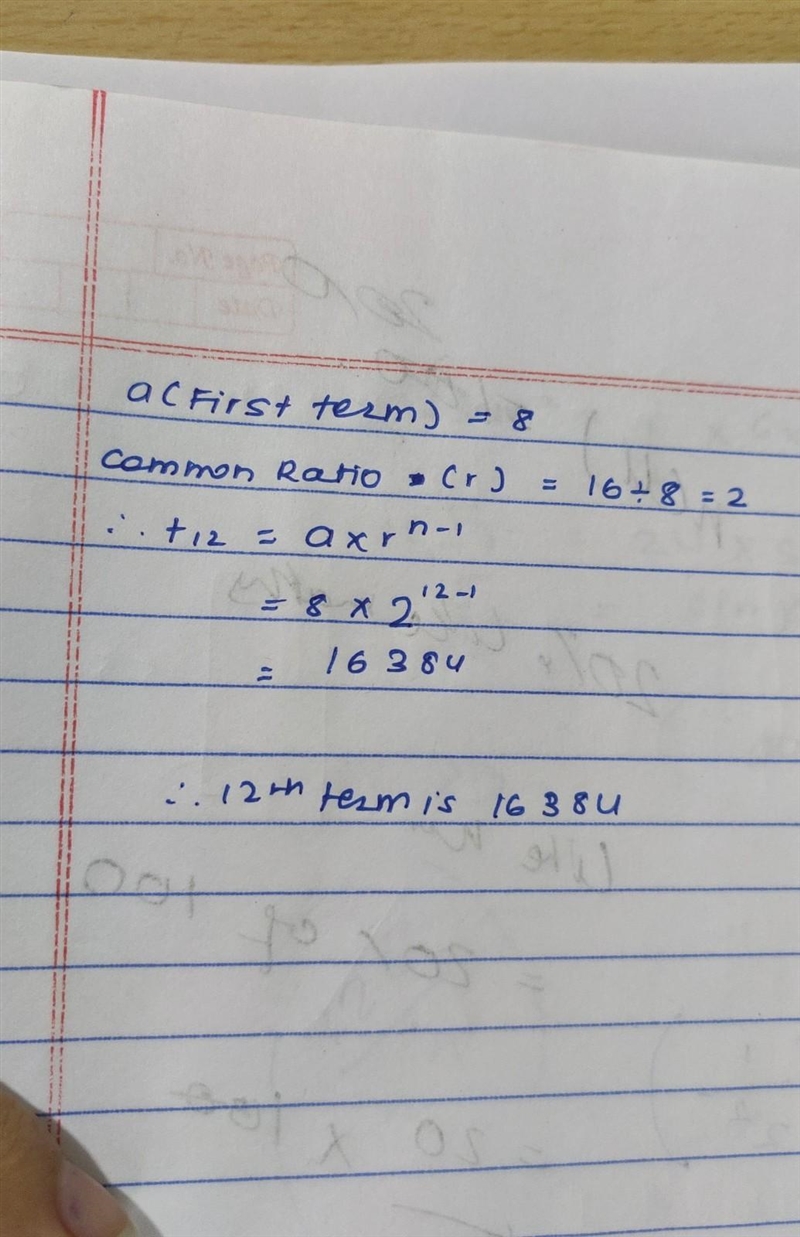 a(First term) = 8
Common Ratio (r) = 16÷8 = 2
∴ t12 = a×r^n-1
= 8 × 2^12-1
= 16384
∴ 12th term is 16384